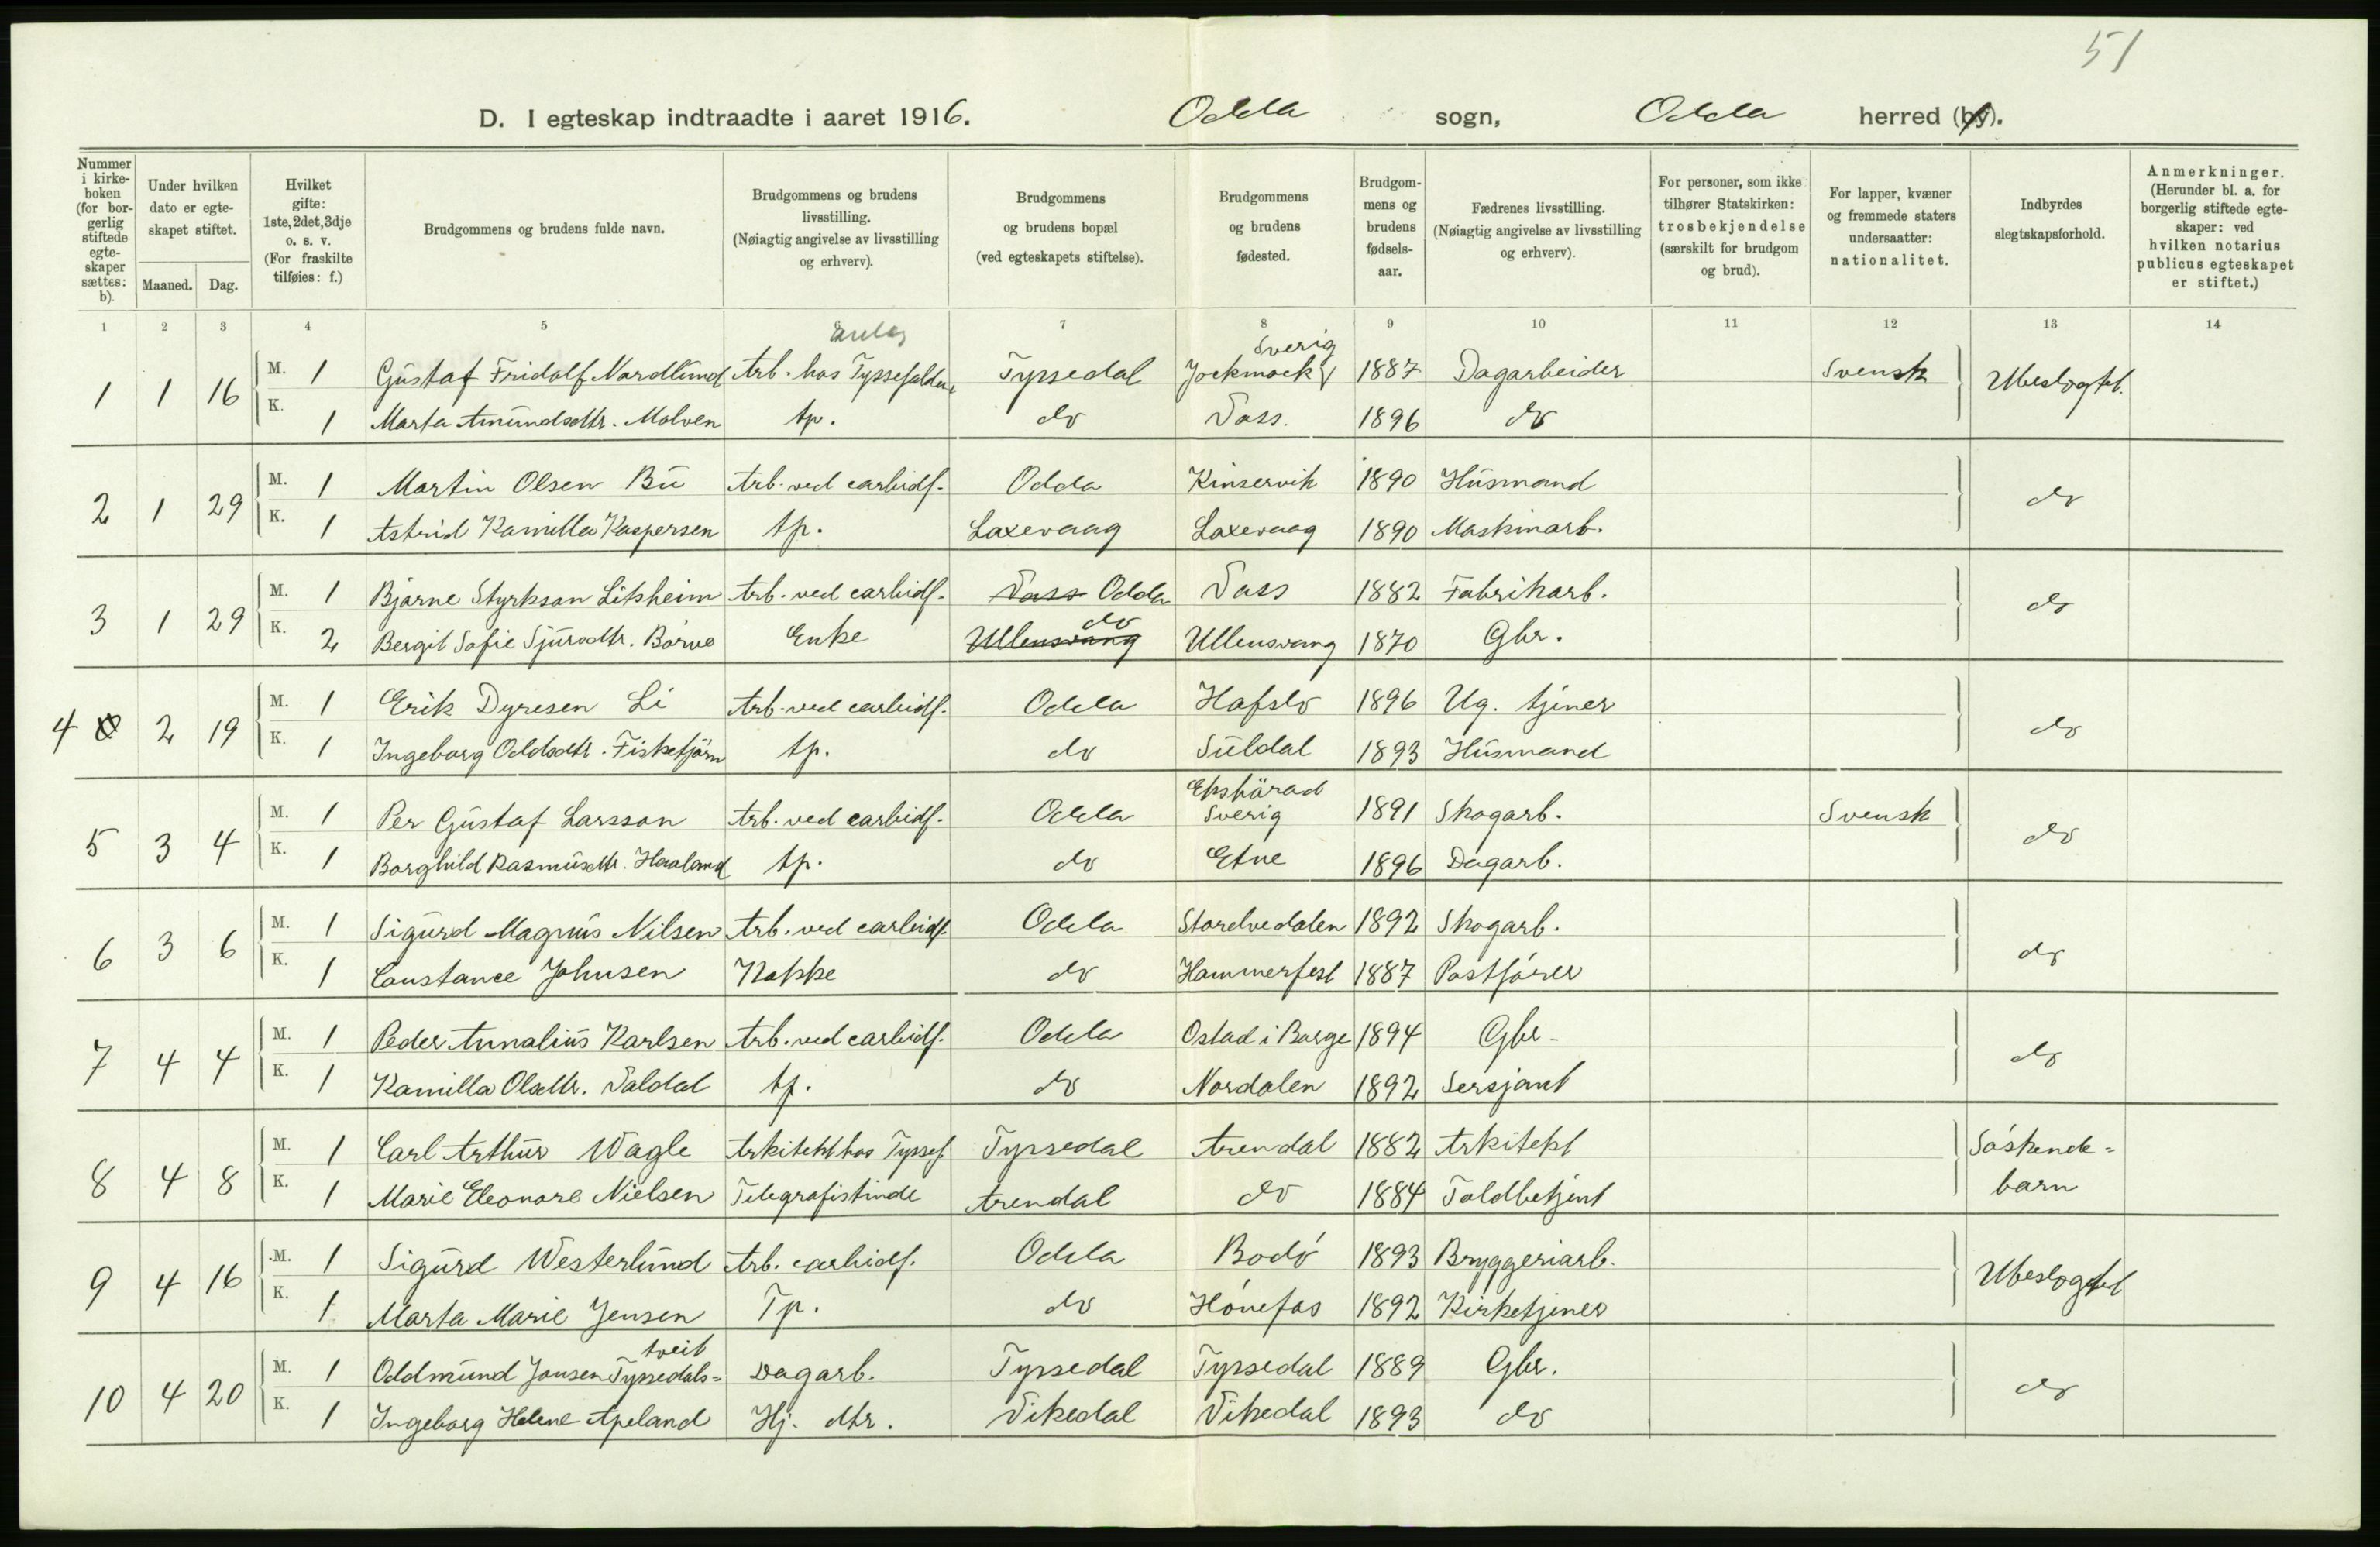 51
D. I egteskap indtraadte i aaret 1916. Odda sogn, Odda herred (by).
Nummer i kirkeboken (for borgerlig stiftede egteskaper sættes: b).
Under hvilken dato er egteskapet stiftet.
Maaned. Dag.
Hvilket gifte: 1ste, 2det, 3dje o. s. v. (For fraskilte tilføies: f.)
Brudgommens og brudens fulde navn.
Brudgommens og brudens livsstilling. (Nøiagtig angivelse av livsstilling og erhverv).
Brudgommens og brudens bopæl (ved egteskapets stiftelse).
Brudgommens og brudens fødested.
Brudgommens og brudens fødselsaar.
Fædrenes livsstilling. (Nøiagtig angivelse av livsstilling og erhverv).
For personer, som ikke tilhører Statskirken: trosbekjendelse (særskilt for brudgom og brud).
For lapper, kvæner og fremmede staters undersaatter: nationalitet.
Indbyrdes slegtskapsforhold.
Anmerkninger. (Herunder bl. a. for borgerlig stiftede egteskaper: ved hvilken notarius publicus egteskapet er stiftet.)
1 2 3 4 5 6 7 8 9 10 11 12 13 14
anlæg Sverig
1 1 16 M. 1 Gustaf Fridolf Nordlund Arb. hos Tyssefaldene Tyssedal Jockmock 1887 Dagarbeider Svensk Ubeslogtet.
K. 1 Marta Amundsdtr. Molven tp. do Voss. 1896 do
2 1 29 M. 1 Martin Olsen Bu Arb. ved carbidf. Odda Kinservik 1890 Husmand do
K. 1 Astrid Kamilla Kaspersen tp. Laxevaag Laxevaag 1890 Maskinarb.
3 1 29 M. 1 Bjarne Styrkson Litsheim Arb. ved carbidf. Voss Odda Voss 1882 Fabrikarb. do
K. 2 Bergit Sofie Sjursdtr. Børve Enke Ullensvang do Ullensvang 1870 Gbr.
4 2 19 M. 1 Erik Dyresen Li Arb. ved carbidf. Odda Hafslo 1896 Ug. tjener do
K. 1 Ingeborg Oddsdtr. Fisketjørn tp. do Suldal 1893 Husmand
5 3 4 M. 1 Per Gustaf Larsson Arb. ved carbidf. Odda Ekshärad Sverig 1891 Skogarb. Svensk do
K. 1 Borghild Rasmusdtr. Haaland tp. do Etne 1896 Dagarb.
6 3 6 M. 1 Sigurd Magnus Nilsen Arb. ved carbidf. Odda Storelvedalen 1892 Skogarb. do
K. 1 Constance Johnsen Kokke do Hammerfest 1887 Postfører
7 4 4 M. 1 Peder Annalius Karlsen Arb. ved carbidf. Odda Ostad i Borge 1894 Gbr. do
K. 1 Kamilla Olsdtr. Valdal tp. do Nordalen 1892 Sersjant
8 4 8 M. 1 Carl Arthur Wagle Arkitekt hos Tyssef. Tyssedal Arendal 1882 Arkitekt Søskende=
K. 1 Marie Eleonore Nielsen Telegrafistinde Arendal do 1884 Toldbetjent barn
9 4 16 M. 1 Sigurd Westerlund Arb. carbidf. Odda Bodø 1893 Bryggeriarb. Ubeslogtet
K. 1 Marta Marie Jensen Tp. do Hønefos 1892 Kirketjener
10 4 20 M. 1 Oddmund Jonsen Tyssedals=tveit Dagarb. Tyssedal Tyssedal 1889 Gbr. do
K. 1 Ingeborg Helene Apeland Hj. dtr. Vikedal Vikedal 1893 do